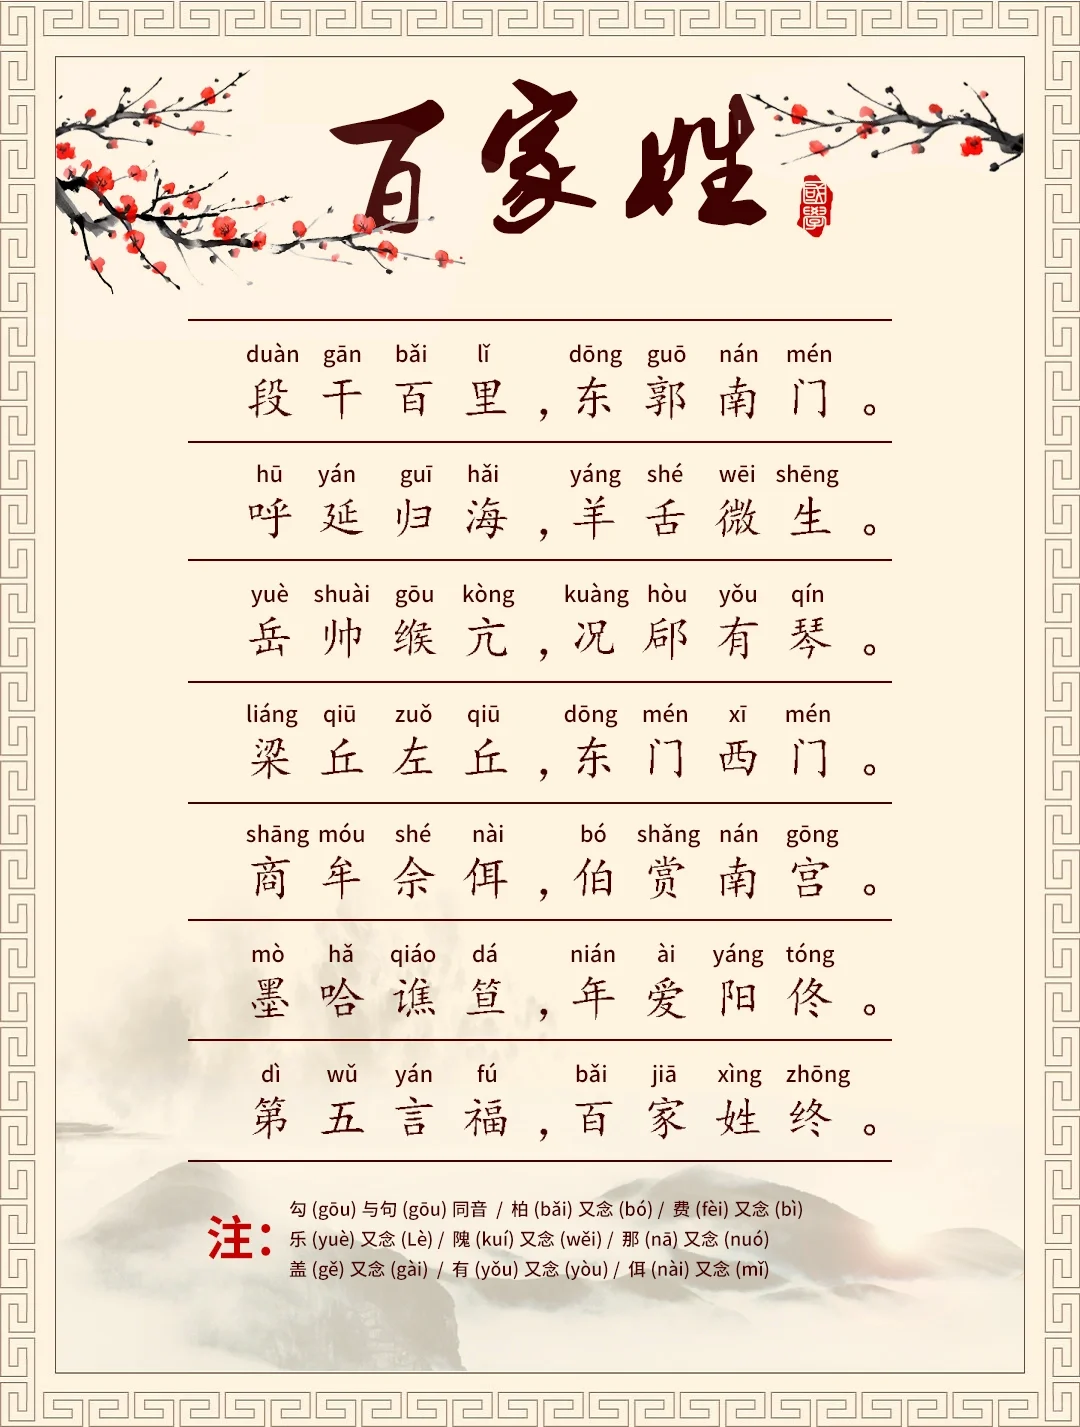 百家姓
國學
duàn gān bǎi lǐ dōng guō nán mén
段干百里，东郭南门。
hū yán guī hǎi yáng shé wēi shēng
呼延归海，羊舌微生。
yuè shuài gōu kòng kuàng hòu yǒu qín
岳帅缑亢，况郈有琴。
liáng qiū zuǒ qiū dōng mén xī mén
梁丘左丘，东门西门。
shāng móu shé nài bó shǎng nán gōng
商牟佘佴，伯赏南宫。
mò hǎ qiáo dá nián ài yáng tóng
墨哈谯笪，年爱阳佟。
dì wǔ yán fú bǎi jiā xìng zhōng
第五言福，百家姓终。
注：
勾 (gōu) 与句 (gōu) 同音 / 柏 (bǎi) 又念 (bó) / 费 (fèi) 又念 (bì)
乐 (yuè) 又念 (Lè) / 隗 (kuí) 又念 (wěi) / 那 (nā) 又念 (nuó)
盖 (gě) 又念 (gài) / 有 (yǒu) 又念 (yòu) / 佴 (nài) 又念 (mǐ)